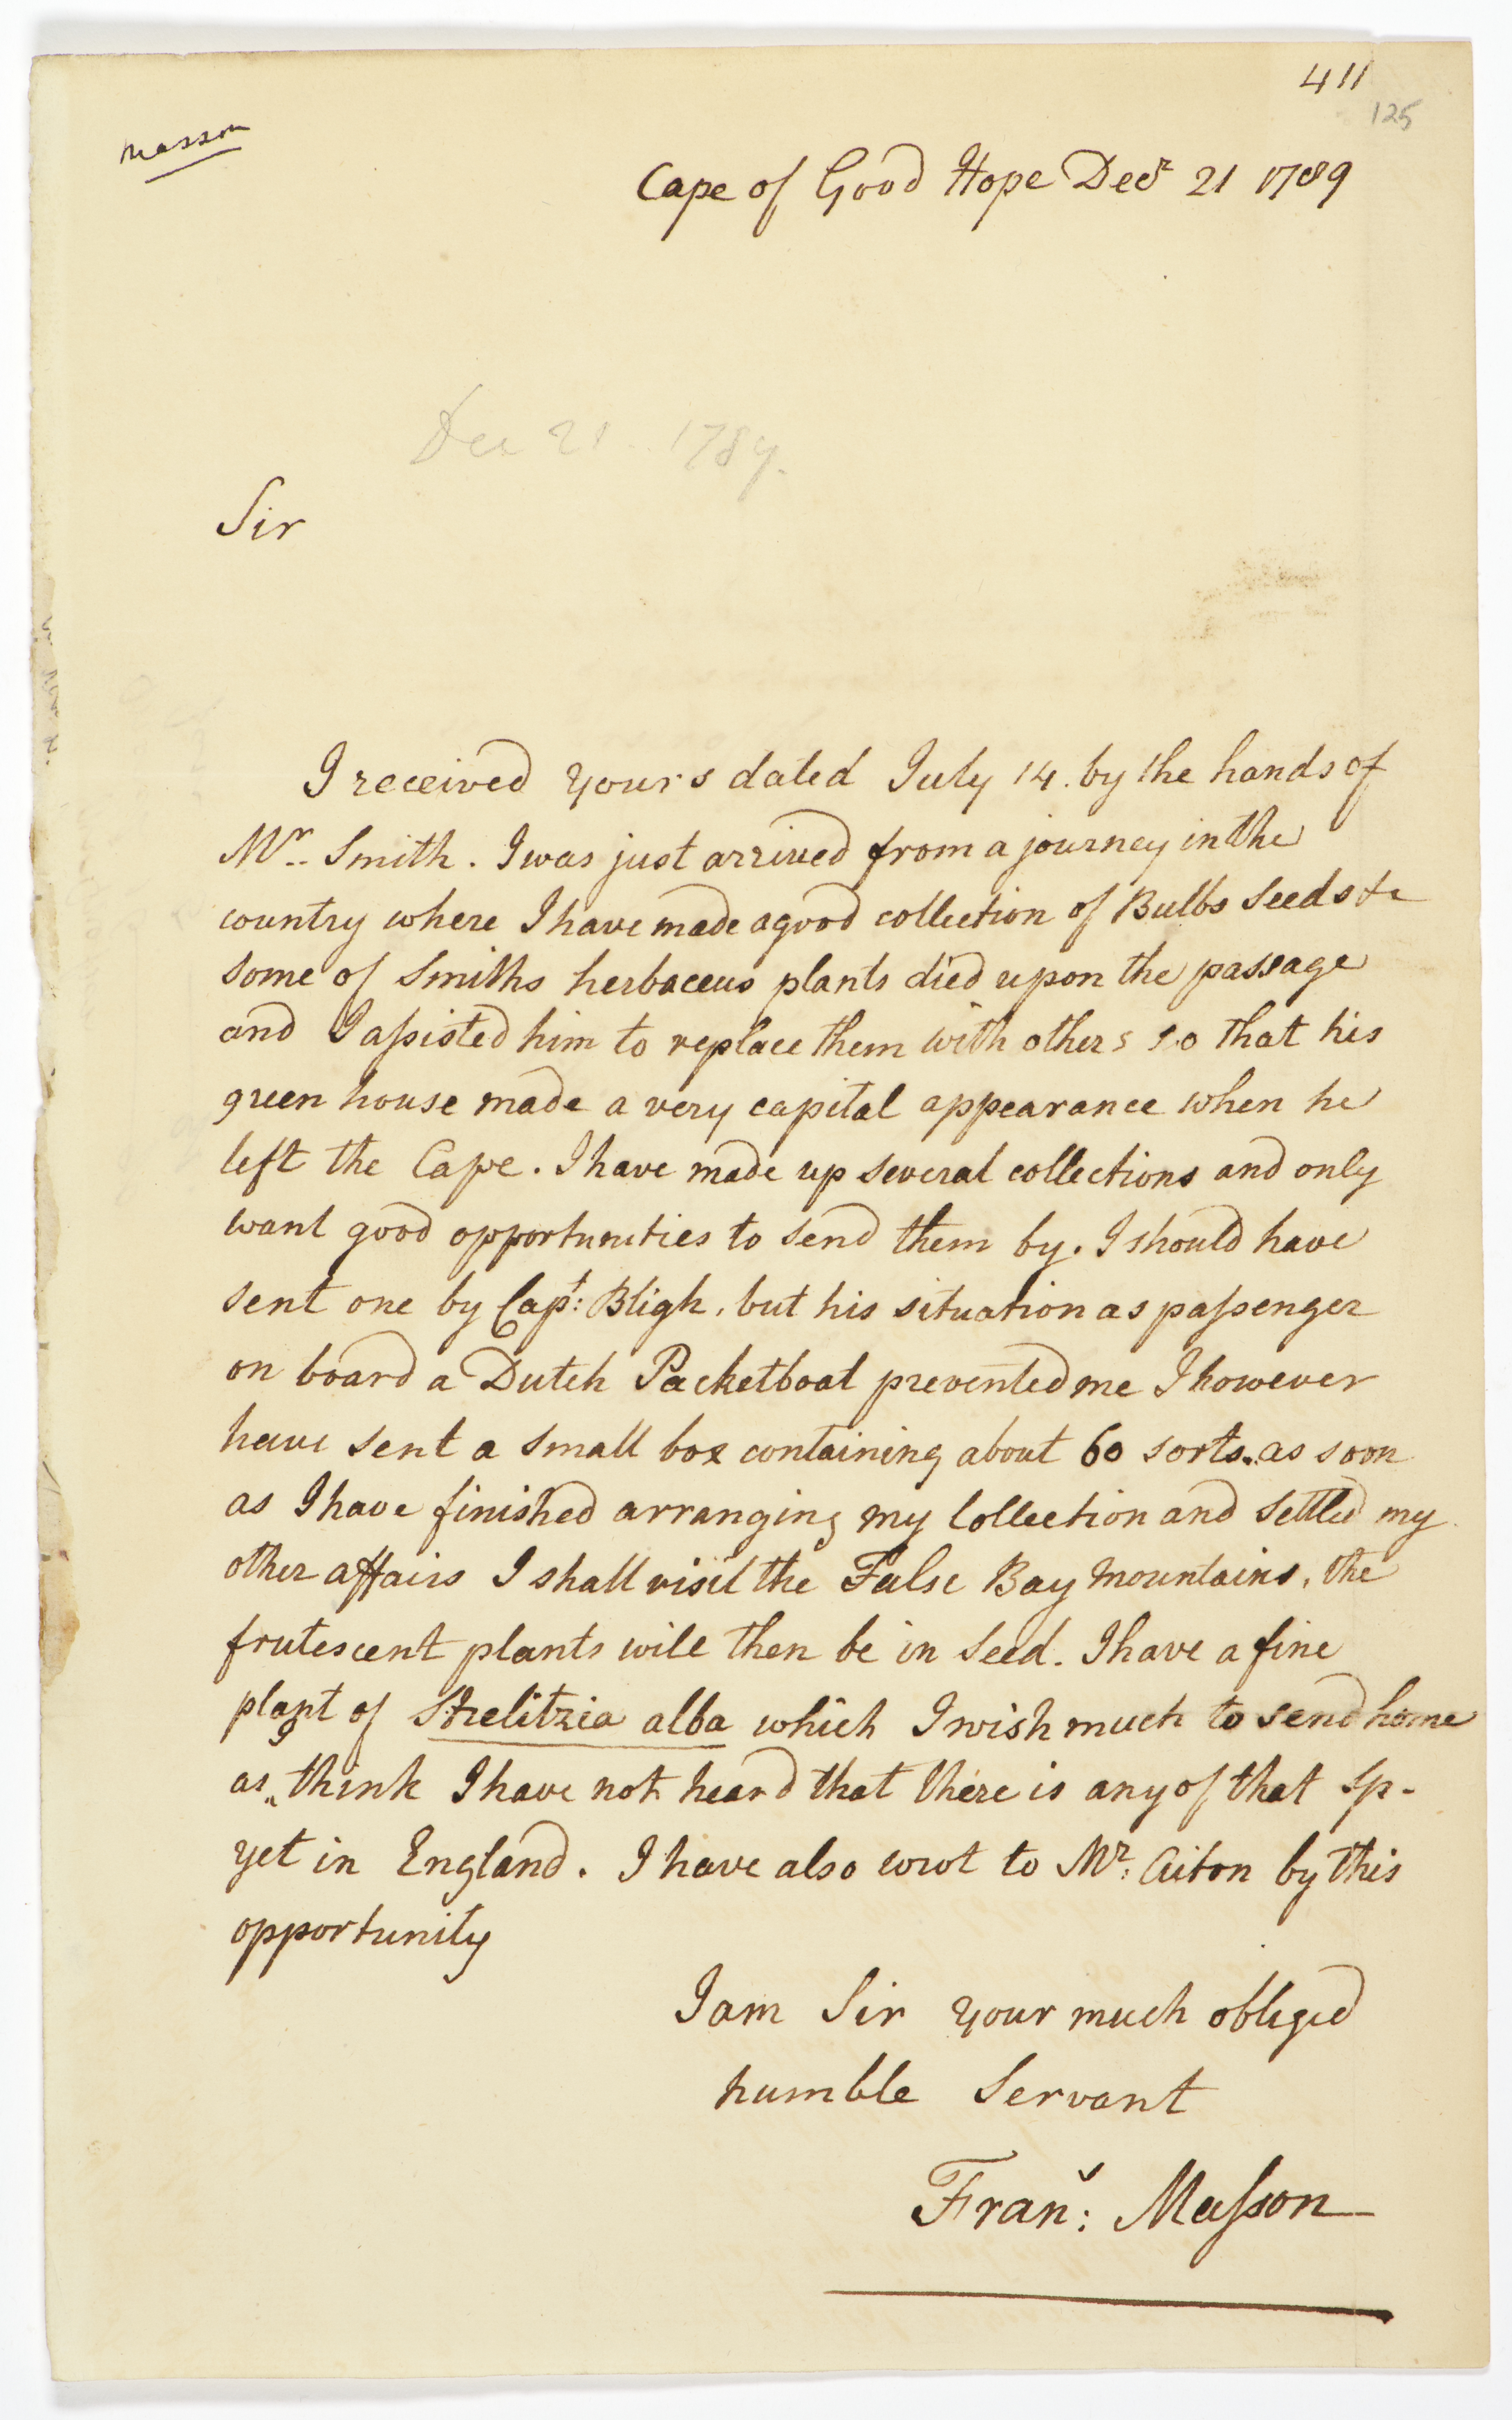 411
125
Masson
Cape of Good Hope Decr 21 1789
Dec 21. 1789.
Sir
I received yours dated July 14. by the hands of
Mr. Smith. I was just arrived from a journey in the
country where I have made a good collection of Bulbs Seeds &c
some of Smiths herbaceus plants died upon the passage
and I aſsisted him to replace them with others so that his
green house made a very capital appearance when he
left the Cape. I have made up several collections and only
want good opportunities to send them by. I should have
sent one by Capt: Bligh, but his situation as paſsenger
on board a Dutch Packetboat prevented me I however
have sent a small box containing about 60 sorts. as soon
as I have finished arranging my Collection and Settled my
other affairs I shall visit the False Bay Mountains, the
frutescent plants will then be in Seed. I have a fine
plant of Strelitzia alba which I wish much to send home
as I think I have not heard that there is any of that Sp-
yet in England. I have also wrot to Mr: Aiton by this
opportunity
I am Sir your much obliged
humble Servant
Frans: Maſson